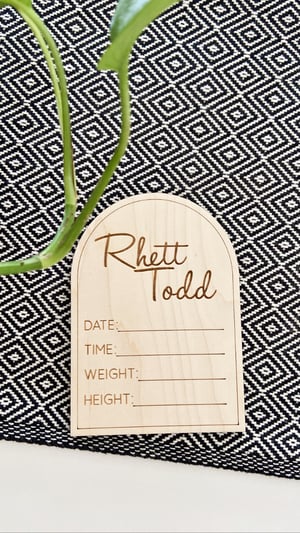 Rhett
Todd
DATE:
TIME:
WEIGHT:
HEIGHT: